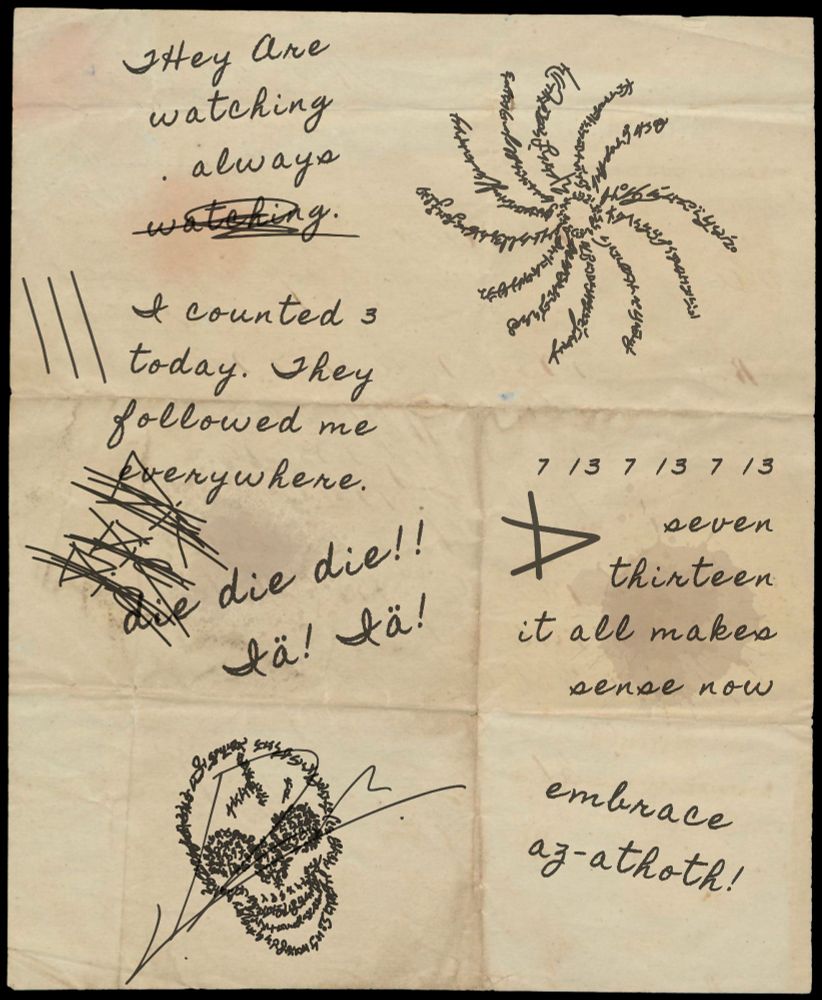 THey Are
watching
. always
watching.
I counted 3
today. They
followed me
everywhere.
die die die!!
Iä! Iä!
7 13 7 13 7 13
seven
thirteen
it all makes
sense now
embrace
az-athoth!